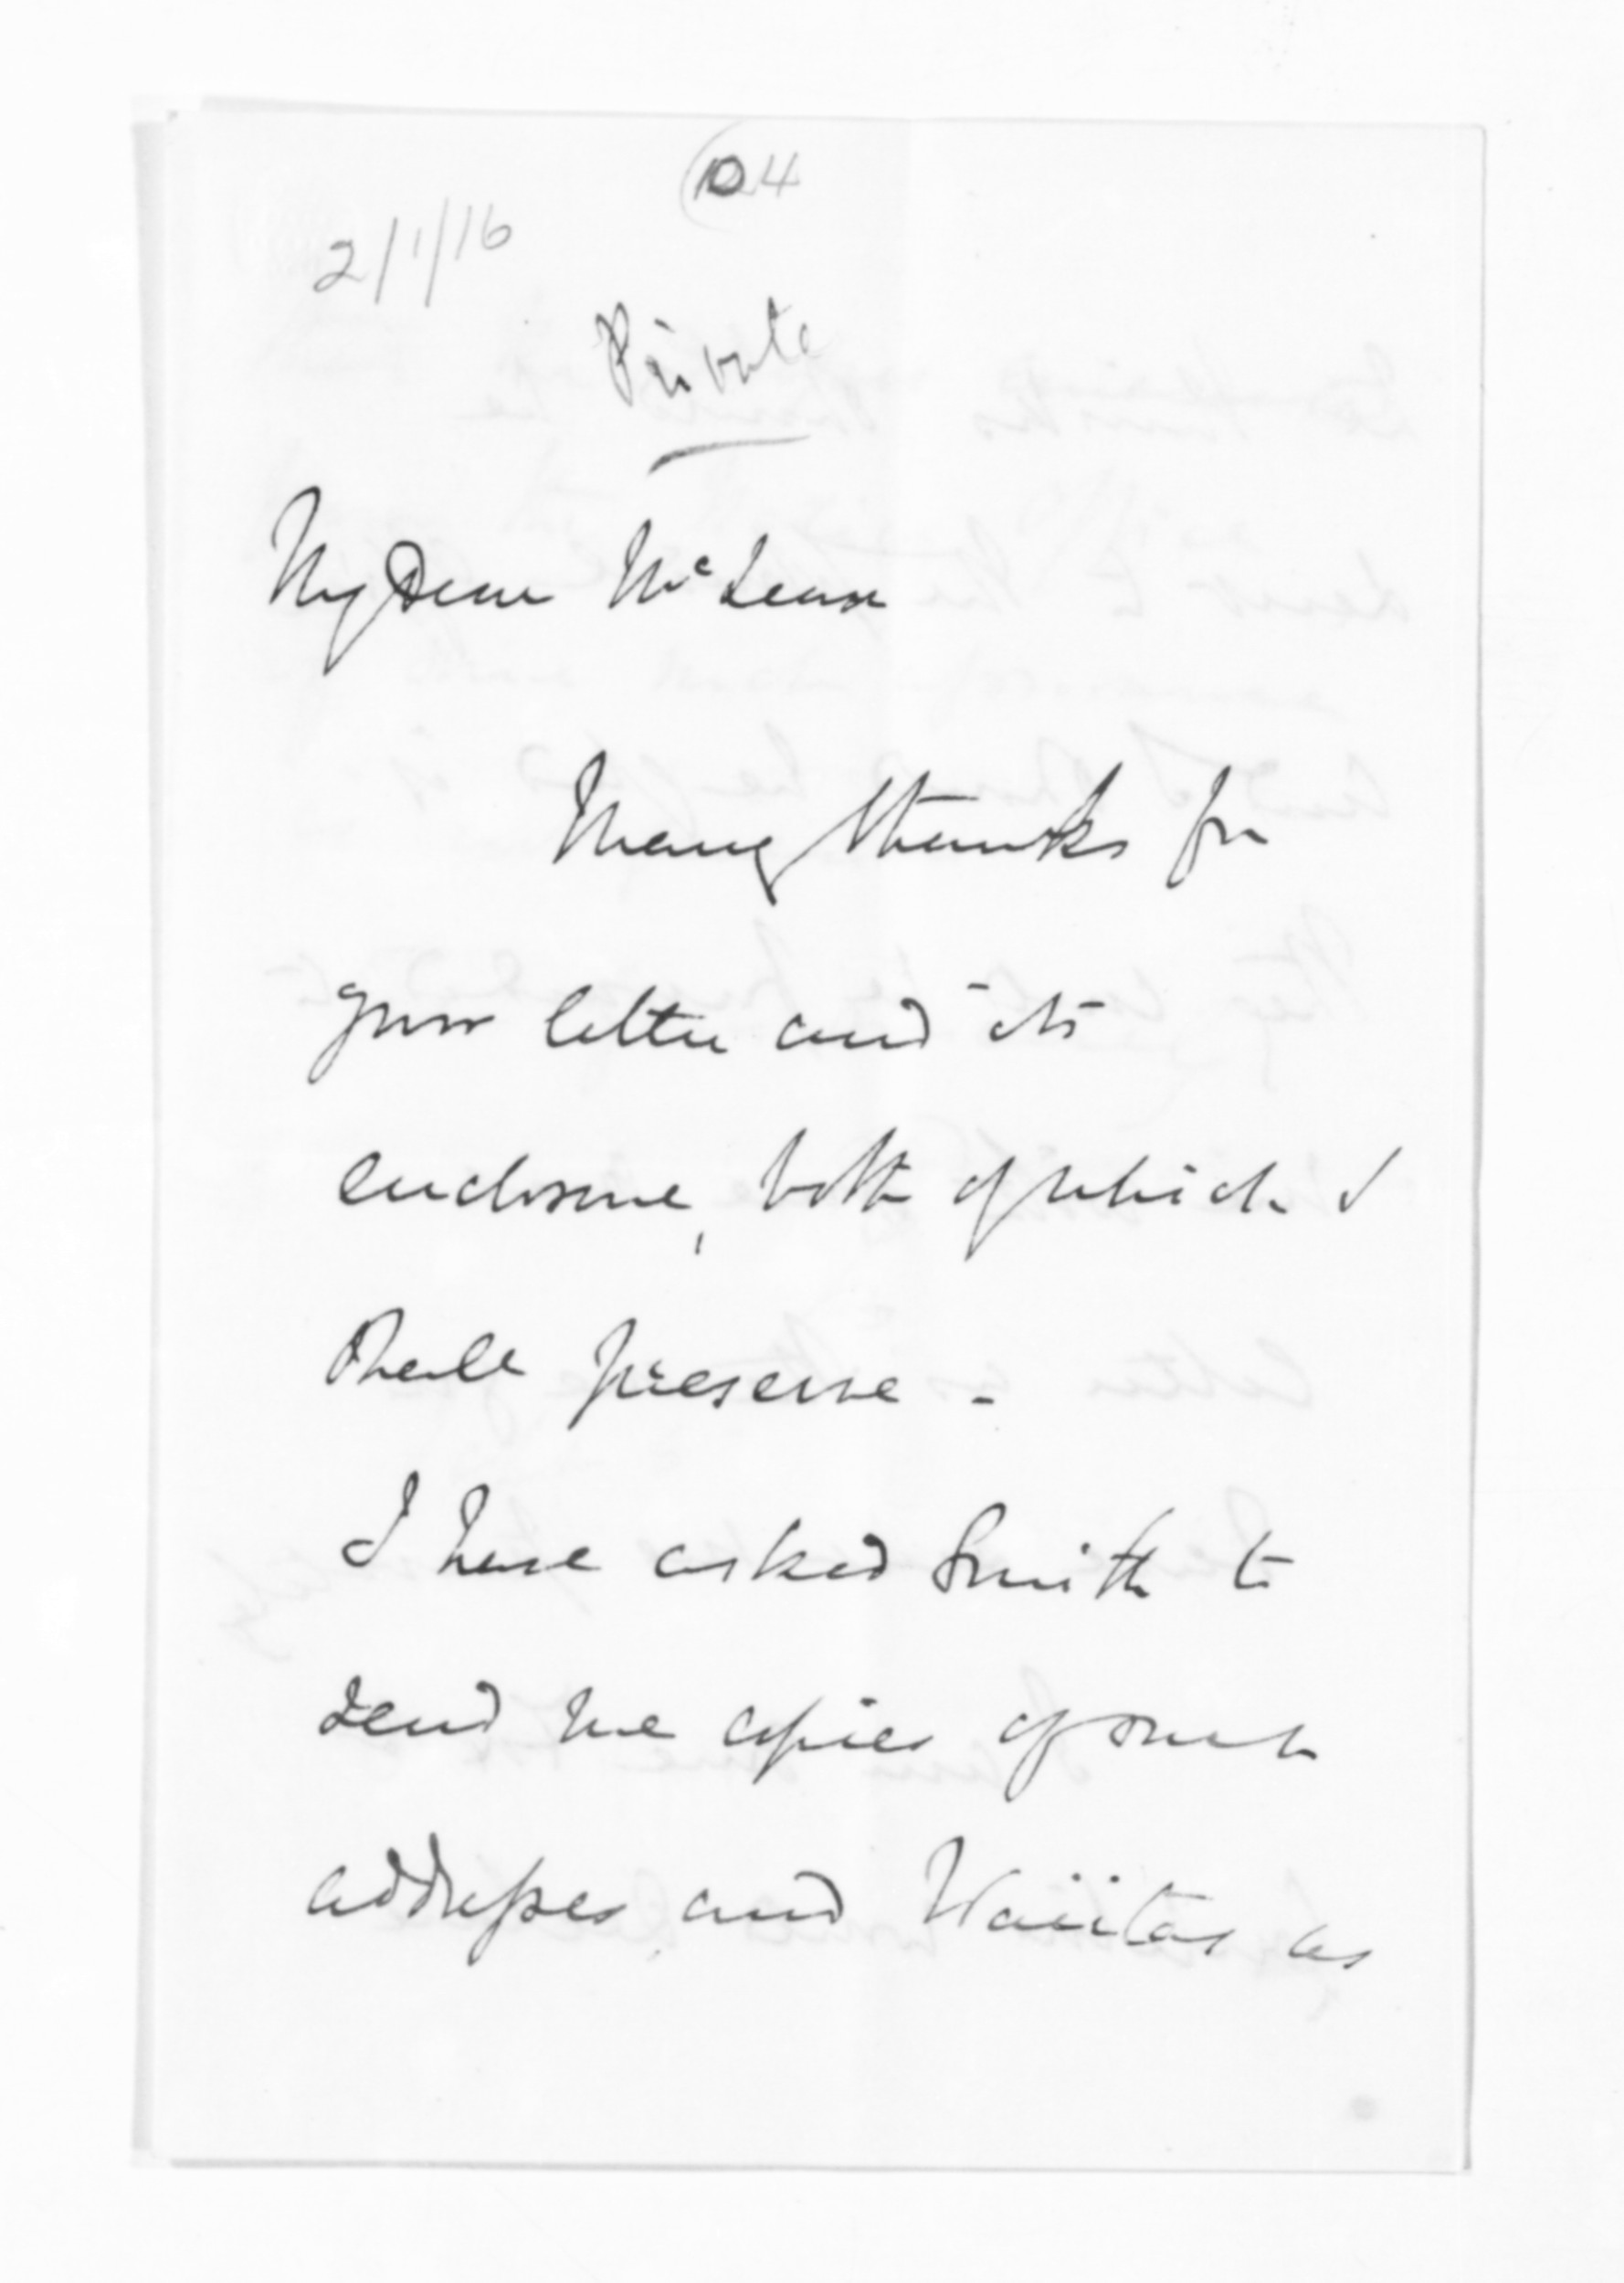 104
2/1/16
Private
My Dear McLean
Many thanks for
your letter and its
enclosure, both of which I
shall preserve -
I have asked Smith to
send me copies of such
addresses and Waiitas as